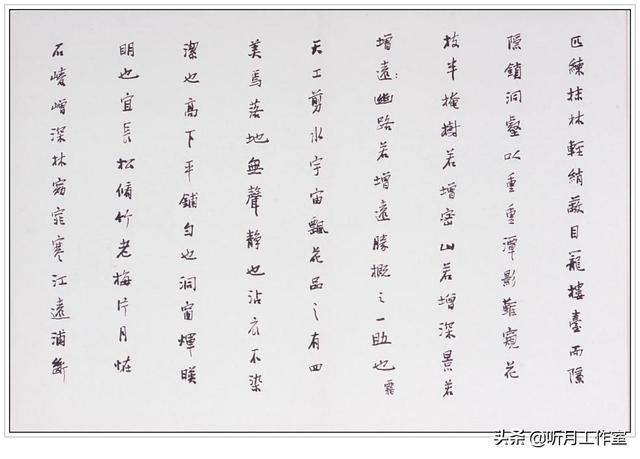 匹練抹林輕綃蔽目籠樓臺而隱
隱鎖洞壑以重重潭影難窺花
枝半掩樹若增密山若增深景若
增遠：幽路若增遠勝概之一助也 霧
天工剪水宇宙飄花品之有四
美焉落地無聲靜也沾衣不染
潔也高下平鋪勻也洞窗輝映
明也宜長松脩竹老梅片月怪
石崚嶒深林窈窕寒江遠浦斷
头条 @听月工作室